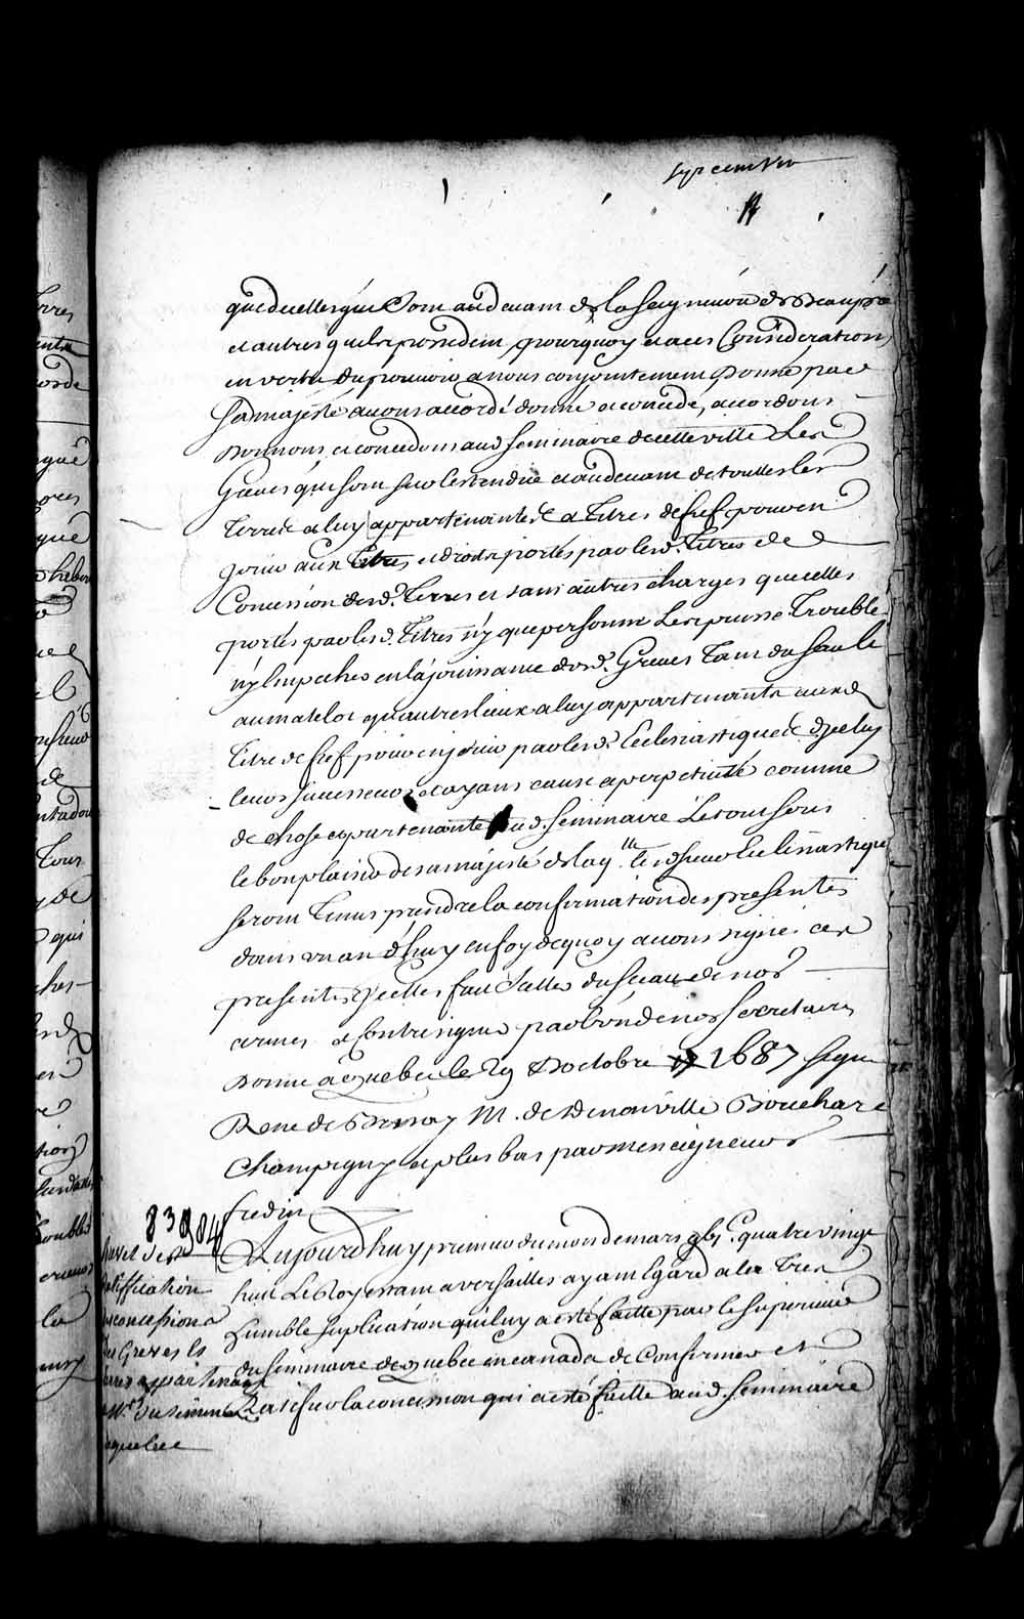 que de celles qui Sont audevant de la Seigneurie de Beaupré
et autres quils possedent, pourquoy et a ces Considerations
en vertu du pouvoir a nous conjointement Donné par
Sa majesté avons accordé donné et concedé, accordons
Donnons et concedons aud Seminaire de cette ville Les
Greves qui sont sur lestendüe et audevant de touttes les
Terres a luy appartenantes a Titres de fief pour en
jouir aux Titres et droits portés par lesd. Titres de
Concession desd. Terres et sans autres charges que celles
portés par lesd. Titres n'y que personne Les puisse Troubler
n'y Empecher en la jouissance desd. Greves Tant du Sault
au matelot qu'autres lieux a luy appartenants aud
Titre de fief pour en jouir par lesd. Ecclesiastiques d'jceluy
leurs successeurs et ayans cause a perpetuité comme
de chose appartenante aud. Seminaire Le tout sous
le bon plaisir de sa majesté de laq.lle lesd sieurs Ecclesiastiques
seront Tenus prendre la confirmation des presentes
dans un an d'huy en foy de quoy avons signé ces
presentes Jcelles fait Seller du Sceau de nos
armes et Contresigner par l'un de nos Secretaires
Donné a Quebec le 29 d'octobre 1687 signé
Rene de Brisay M. de Denonville Bochart
Champigny et plus bas par messeigneurs
fredin
83 984
Aujourd'huy premier du mois de mars gbic quatre vingt
huit Le Roy estant a versailles ayant Egard a la Tres
humble suplication qui luy a esté faitte par le superieur
du Seminaire de Quebec en canada de Confirmer et
Ratifier la concession qui a esté faitte aud. Seminaire
Brevet de
Ratiffication
de concession
des Greves
appartenant
a Mrs du semin
a quebec